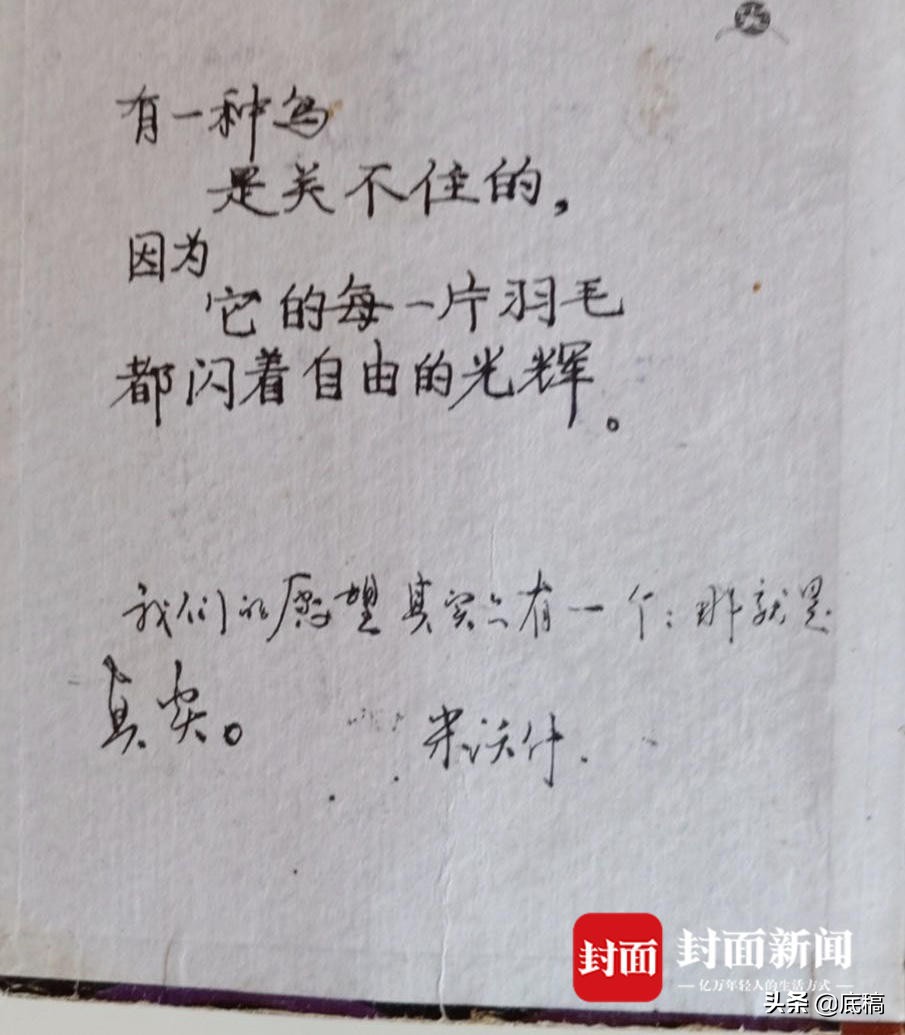 有一种鸟
是关不住的，
因为
它的每一片羽毛
都闪着自由的光辉。
我们的愿望其实只有一个：那就是
真实。
米沃什.
封面
封面新闻
亿万年轻人的生活方式
头条 @底稿